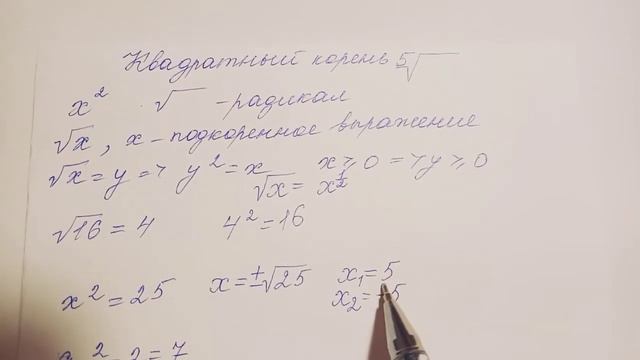 Квадратный корень ⁵√
x² √ - радикал
√x, x - подкоренное выражение
√x = y => y² = x x ≥ 0 => y ≥ 0
√x = x^½
√16 = 4 4² = 16
x² = 25 x = ±√25 x₁ = 5
x₂ = -5
² - 2 = 7